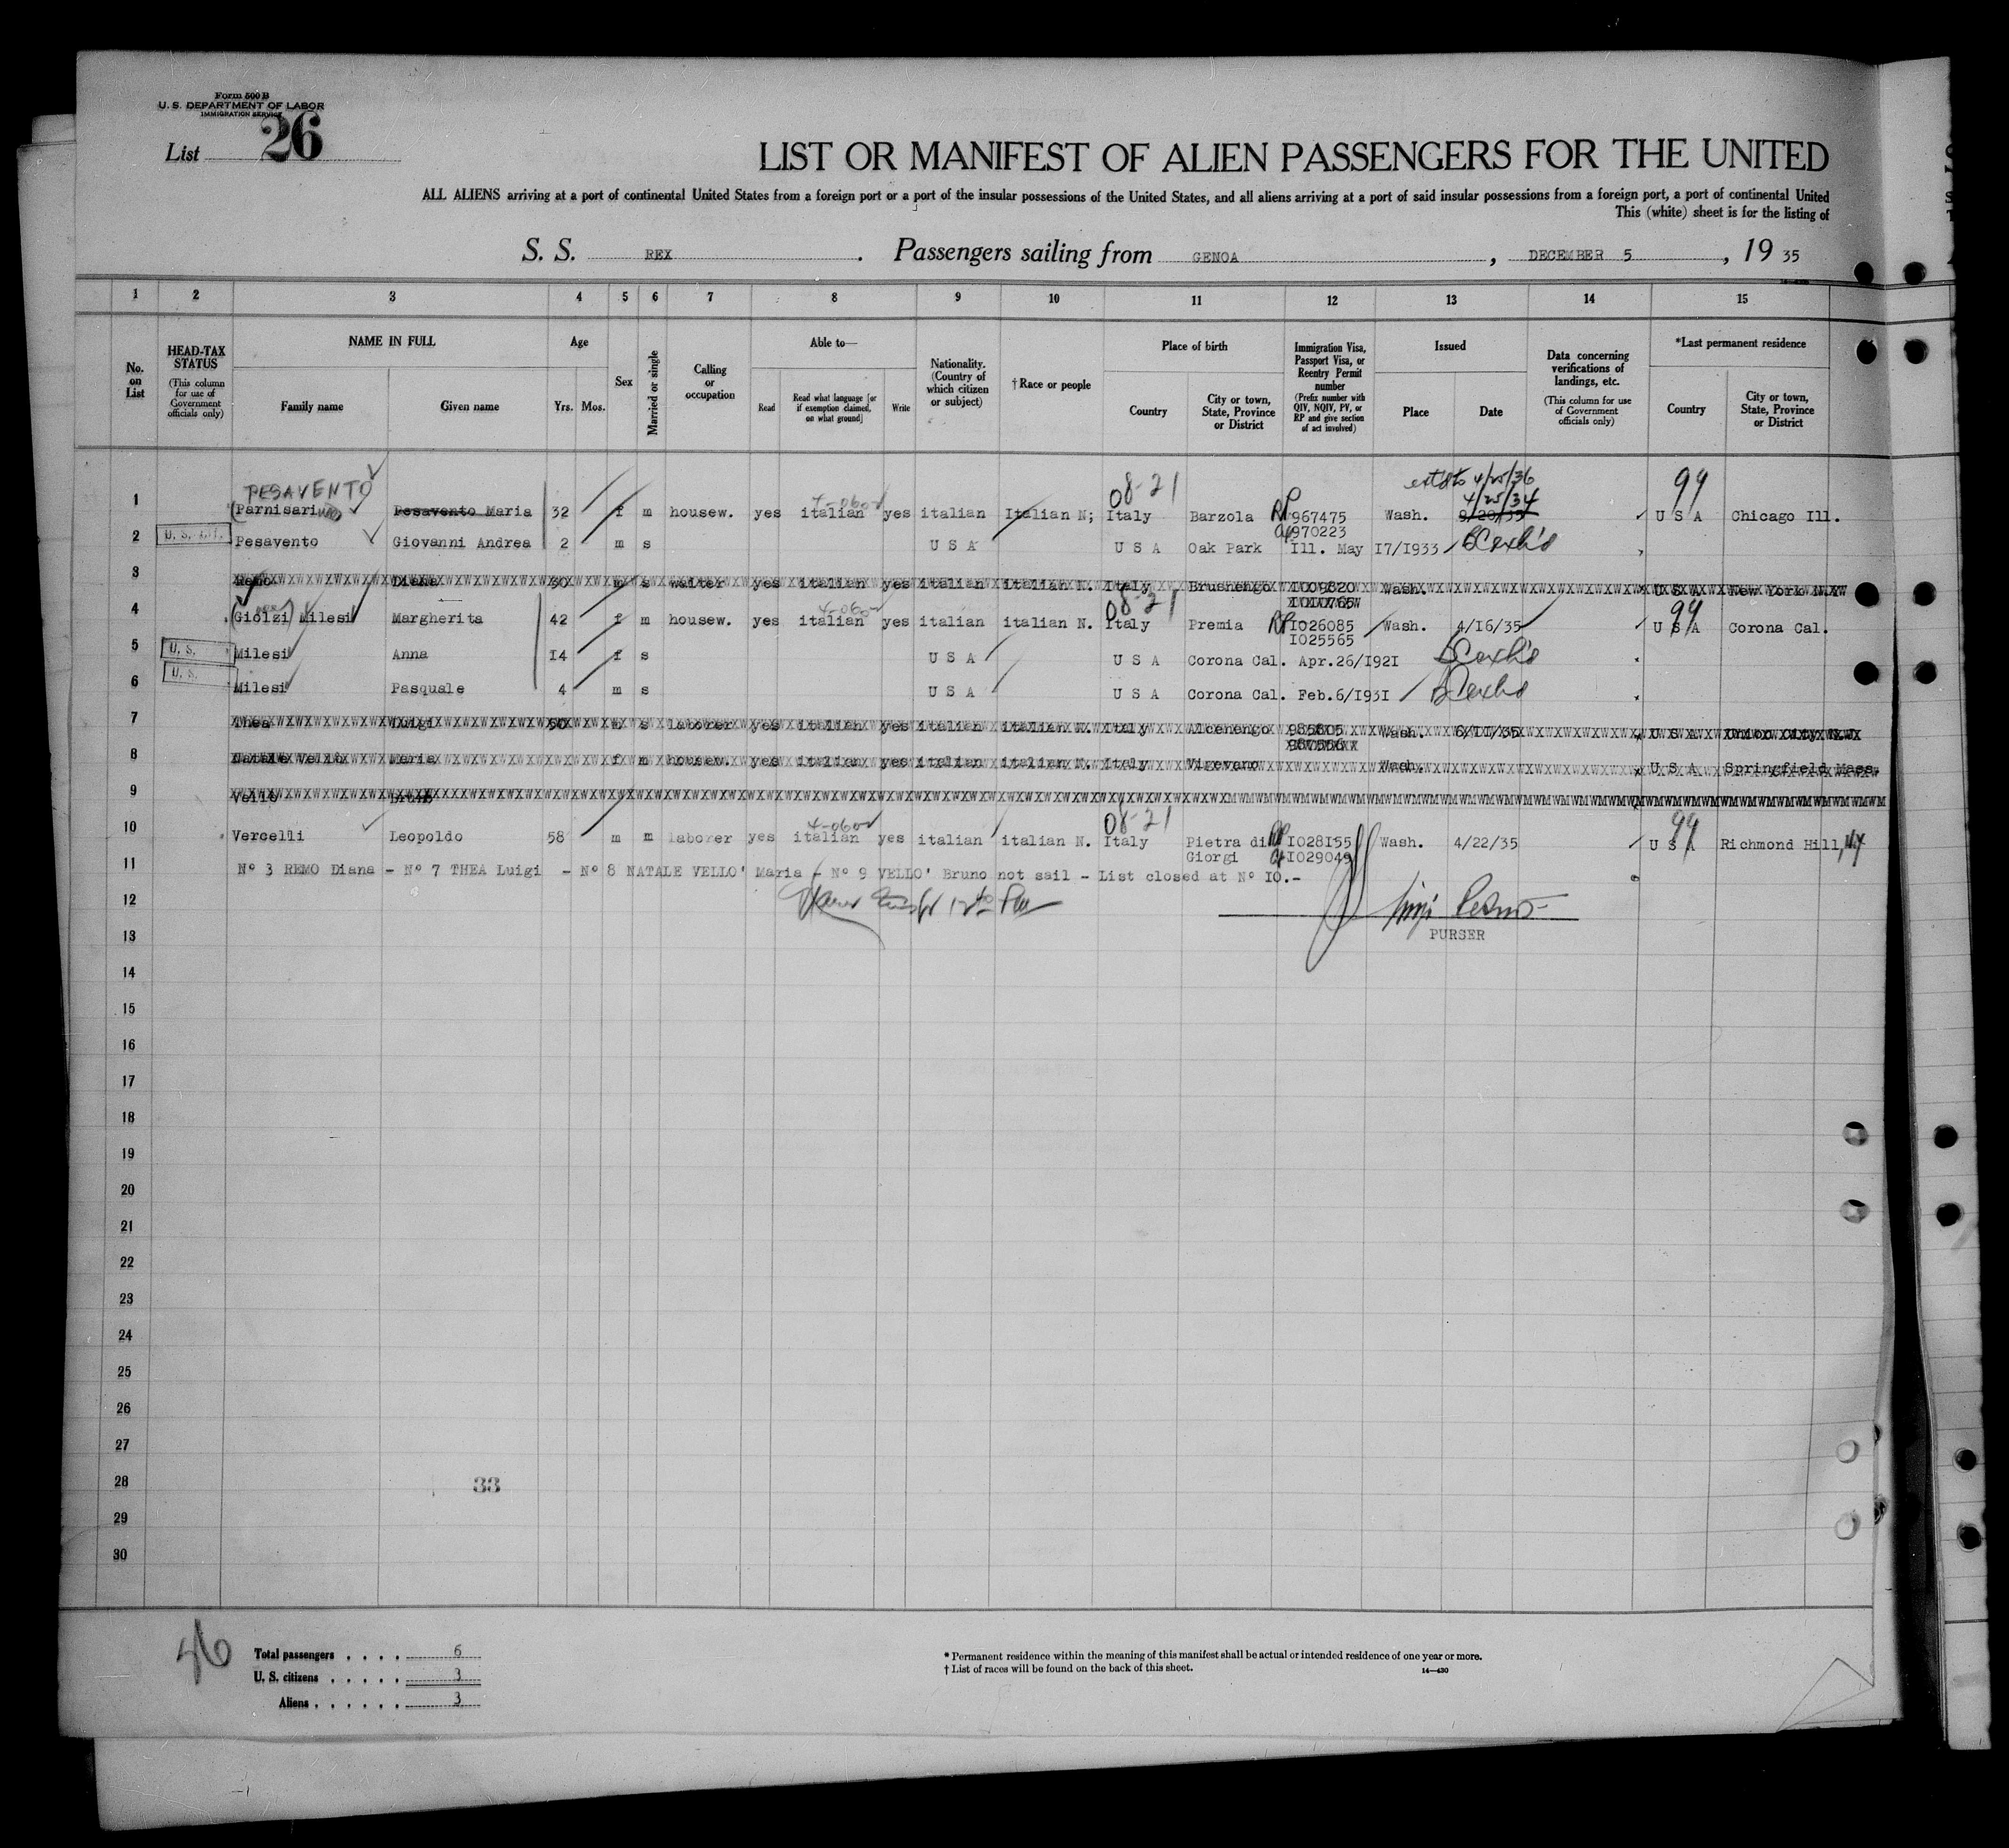 Form 500 B
U. S. DEPARTMENT OF LABOR
IMMIGRATION SERVICE
List 26
LIST OR MANIFEST OF ALIEN PASSENGERS FOR THE UNITED
ALL ALIENS arriving at a port of continental United States from a foreign port or a port of the insular possessions of the United States, and all aliens arriving at a port of said insular possessions from a foreign port, a port of continental United
This (white) sheet is for the listing of
S. S. REX . Passengers sailing from GENOA , DECEMBER 5 , 19 35
1 2 3 4 5 6 7 8 9 10 11 12 13 14 15
No. on List
HEAD-TAX STATUS (This column for use of Government officials only)
NAME IN FULL Family name Given name
Age Yrs. Mos.
Sex
Married or single
Calling or occupation
Able to— Read Read what language [or if exemption claimed, on what ground] Write
Nationality. (Country of which citizen or subject)
† Race or people
Place of birth Country City or town, State, Province or District
Immigration Visa, Passport Visa, or Reentry Permit number (Prefix number with QIV, NQIV, PV, or RP and give section of act involved)
Issued Place Date
Data concerning verifications of landings, etc. (This column for use of Government officials only)
*Last permanent residence Country City or town, State, Province or District
PESAVENTO 4-060 08-21 4/25/36 99
4/25/34
1 (Parnisari Pesavento Maria 32 f m housew. yes italian yes italian Italian N; Italy Barzola RP 967475 Wash. U S A Chicago Ill.
970223
2 Pesavento Giovanni Andrea 2 m s U S A U S A Oak Park Ill. May I7/I933
3 Remo Diana 30 m s waiter yes italian yes italian italian N. Italy Brusnengo I009820 Wash. U S A New York N Y
4-060 08-21 99
4 (Giolzi) Milesi Margherita 42 f m housew. yes italian yes italian italian N. Italy Premia RP I026085 Wash. 4/I6/35 U S A Corona Cal.
I025565
5 U. S. Milesi Anna I4 f s U S A U S A Corona Cal. Apr.26/I92I
6 U. S. Milesi Pasquale 4 m s U S A U S A Corona Cal. Feb.6/I93I
7 Thea Luigi 50 m s laborer yes italian yes italian italian N. Italy Alcenengo 985805 Wash. 6/II/35 U S A Union City N.J
8 Natale Vello Maria f m housew. yes italian yes italian italian N. Italy Vigevano Wash. U S A Springfield Mass.
9 Vello Bruno
4-060 08-21 99
10 Vercelli Leopoldo 58 m m laborer yes italian yes italian italian N. Italy Pietra di RP I028I55 Wash. 4/22/35 U S A Richmond Hill, NY
Giorgi I029049
11 Nº 3 REMO Diana - Nº 7 THEA Luigi - Nº 8 NATALE VELLO' Maria - Nº 9 VELLO' Bruno not sail - List closed at Nº IO.-
12
PURSER
13
14
15
16
17
18
19
20
21
22
23
24
25
26
27
28 33
29
30
46
Total passengers . . . . 6
U. S. citizens . . . . . 3
Aliens . . . . . . 3
* Permanent residence within the meaning of this manifest shall be actual or intended residence of one year or more.
† List of races will be found on the back of this sheet. 14—430